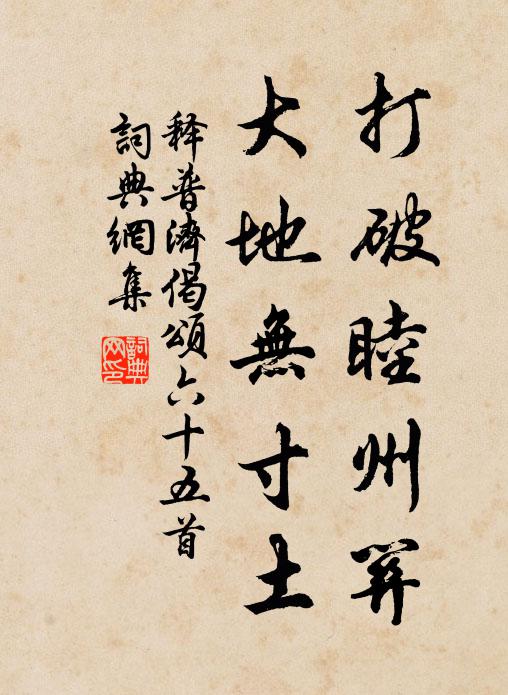 打破睦州関
大地無寸土
释普濟偈頌六十五首
詞典網集
詞典網印